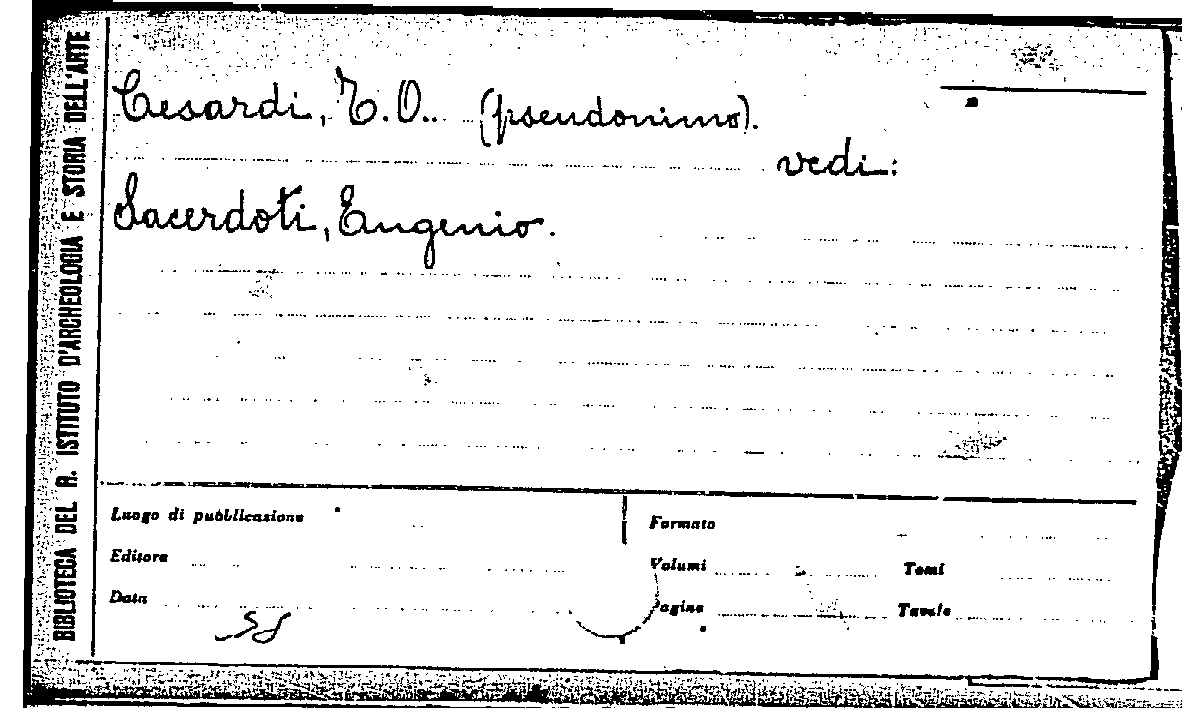 BIBLIOTECA DEL R. ISTITUTO D'ARCHEOLOGIA E STORIA DELL'ARTE
Cesardi, T.O.. (pseudonimo).
vedi:
Sacerdoti, Eugenio.
Luogo di pubblicazione
Formato
Editore
Volumi
Tomi
Data
Pagine
Tavole